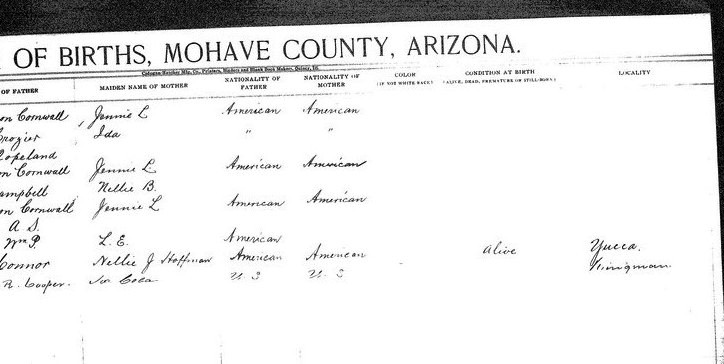 OF BIRTHS, MOHAVE COUNTY, ARIZONA.
OF FATHER MAIDEN NAME OF MOTHER NATIONALITY OF FATHER NATIONALITY OF MOTHER COLOR (IF NOT WHITE RACE) CONDITION AT BIRTH (ALIVE, DEAD, PREMATURE OR STILL-BORN) LOCALITY
on Cornwall Jennie L American American
rozier Ida " "
Copeland
on Cornwall Jennie L. American American
ampbell Nellie B.
on Cornwall Jennie L American American
A. S.
Wm P. L. E. American
Connor Nellie J Hoffman American American Alive Yucca.
R. Cooper. U. S U. S Kingman